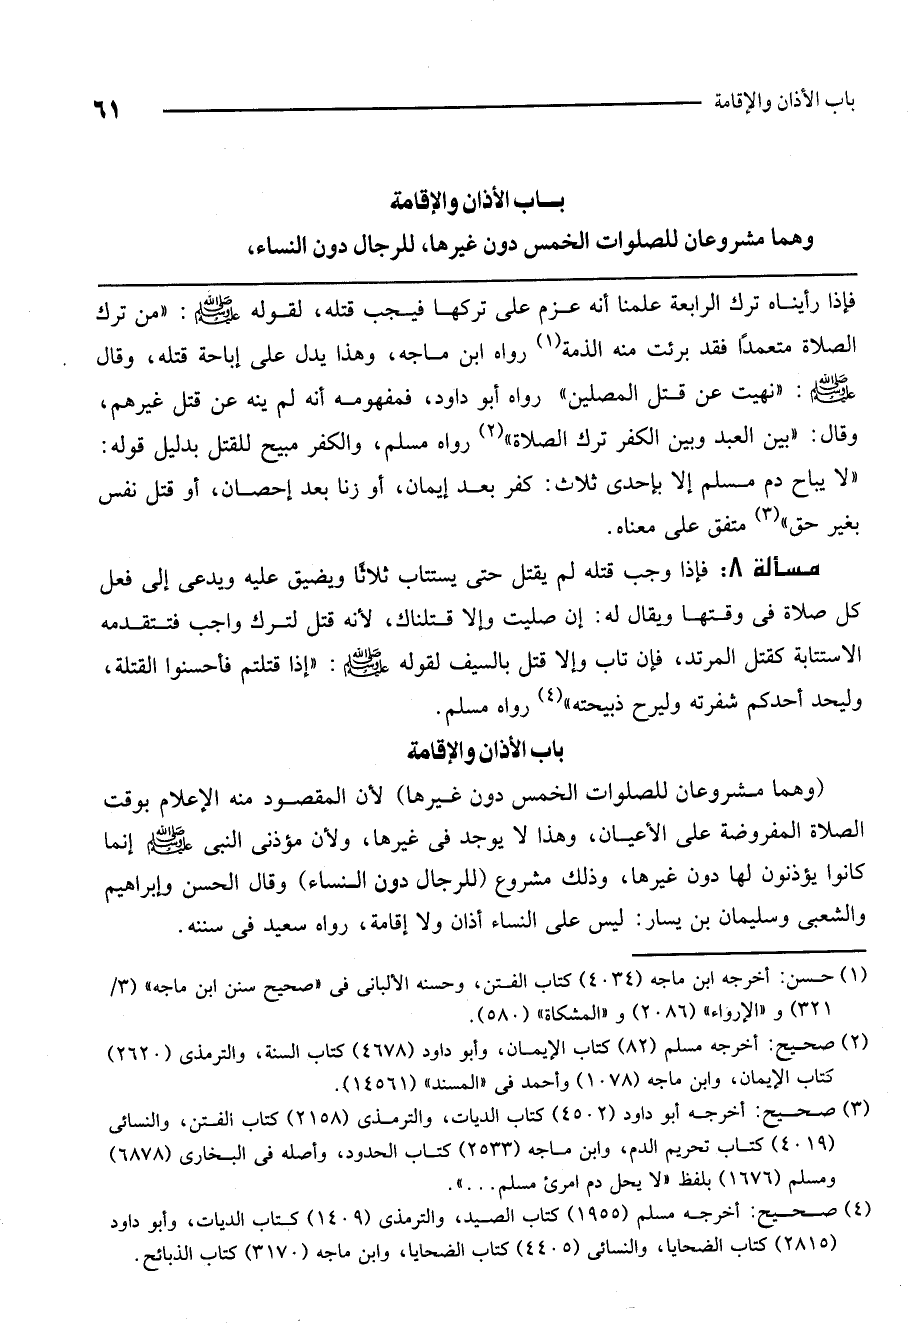 باب الأذان والإقامة ٦١
بـــاب الأذان والإقامة
وهما مشروعان للصلوات الخمس دون غيرها، للرجال دون النساء،
فإذا رأيناه ترك الرابعة علمنا أنه عزم على تركها فيجب قتله، لقوله ﷺ : «من ترك
الصلاة متعمدًا فقد برئت منه الذمة(١) رواه ابن ماجه، وهذا يدل على إباحة قتله، وقال
ﷺ : «نهيت عن قتل المصلين» رواه أبو داود، فمفهومه أنه لم ينه عن قتل غيرهم،
وقال: «بين العبد وبين الكفر ترك الصلاة»(٢) رواه مسلم، والكفر مبيح للقتل بدليل قوله:
«لا يباح دم مسلم إلا بإحدى ثلاث: كفر بعد إيمان، أو زنا بعد إحصان، أو قتل نفس
بغير حق»(٣) متفق على معناه.
مسألة ٨: فإذا وجب قتله لم يقتل حتى يستتاب ثلاثًا ويضيق عليه ويدعى إلى فعل
كل صلاة فى وقتها ويقال له: إن صليت وإلا قتلناك، لأنه قتل لترك واجب فتتقدمه
الاستتابة كقتل المرتد، فإن تاب وإلا قتل بالسيف لقوله ﷺ : «إذا قتلتم فأحسنوا القتلة،
وليحد أحدكم شفرته وليرح ذبيحته»(٤) رواه مسلم.
باب الأذان والإقامة
(وهما مشروعان للصلوات الخمس دون غيرها) لأن المقصود منه الإعلام بوقت
الصلاة المفروضة على الأعيان، وهذا لا يوجد فى غيرها، ولأن مؤذنى النبى ﷺ إنما
كانوا يؤذنون لها دون غيرها، وذلك مشروع (للرجال دون النساء) وقال الحسن وإبراهيم
والشعبى وسليمان بن يسار: ليس على النساء أذان ولا إقامة، رواه سعيد فى سننه.
(١) حسن: أخرجه ابن ماجه (٤٠٣٤) كتاب الفتن، وحسنه الألبانى فى «صحيح سنن ابن ماجه» (٣/
٣٢١) و «الإرواء» (٢٠٨٦) و «المشكاة» (٥٨٠).
(٢) صحيح: أخرجه مسلم (٨٢) كتاب الإيمان، وأبو داود (٤٦٧٨) كتاب السنة، والترمذى (٢٦٢٠)
كتاب الإيمان، وابن ماجه (١٠٧٨) وأحمد فى «المسند» (١٤٥٦١).
(٣) صحيح: أخرجه أبو داود (٤٥٠٢) كتاب الديات، والترمذى (٢١٥٨) كتاب الفتن، والنسائى
(٤٠١٩) كتاب تحريم الدم، وابن ماجه (٢٥٣٣) كتاب الحدود، وأصله فى البخارى (٦٨٧٨)
ومسلم (١٦٧٦) بلفظ «لا يحل دم امرئ مسلم...».
(٤) صحيح: أخرجه مسلم (١٩٥٥) كتاب الصيد، والترمذى (١٤٠٩) كتاب الديات، وأبو داود
(٢٨١٥) كتاب الضحايا، والنسائى (٤٤٠٥) كتاب الضحايا، وابن ماجه (٣١٧٠) كتاب الذبائح.